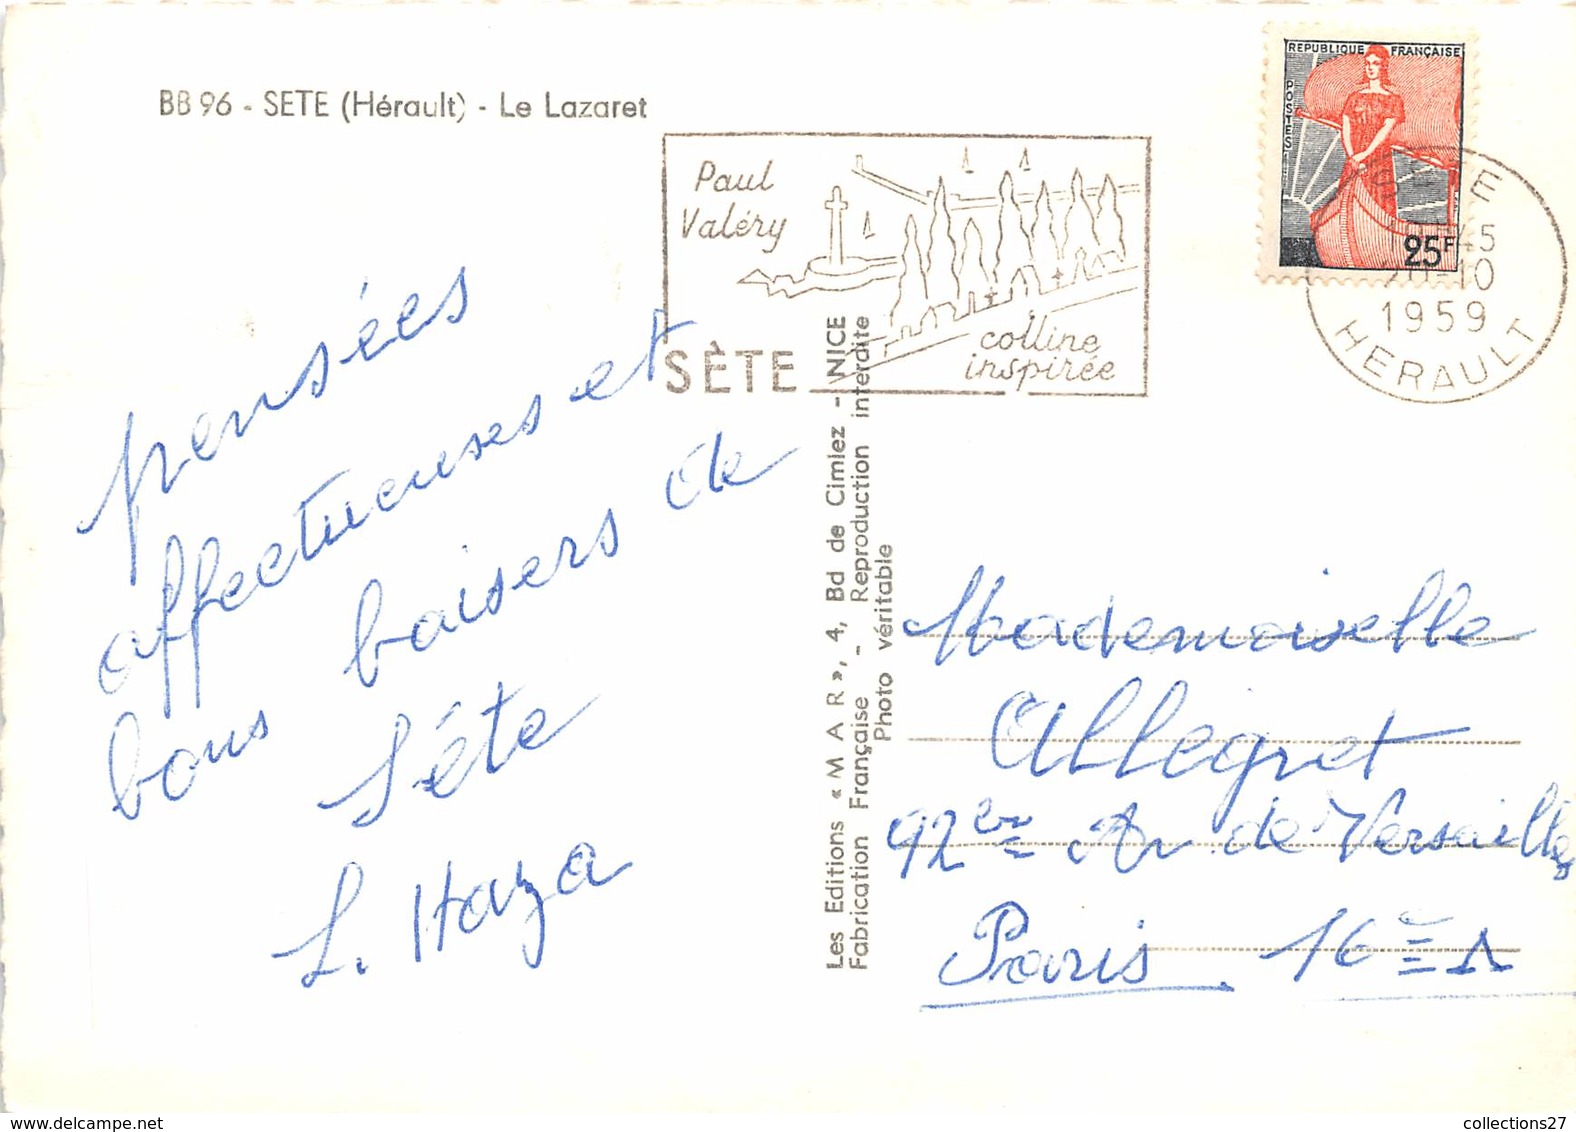 BB 96 - SETE (Hérault) - Le Lazaret
Paul
Valéry
colline
inspirée
SÈTE
REPUBLIQUE FRANÇAISE
POSTES
25F
SETE
45
20-10
1959
HERAULT
pensées
affectueuses et
bons baisers de
Séte
Les Editions « M A R », 4, Bd de Cimiez - NICE
Fabrication Française - Reproduction interdite
Photo véritable
Mademoiselle
Allegret
92 Av de Versailles
Paris 16
collections27